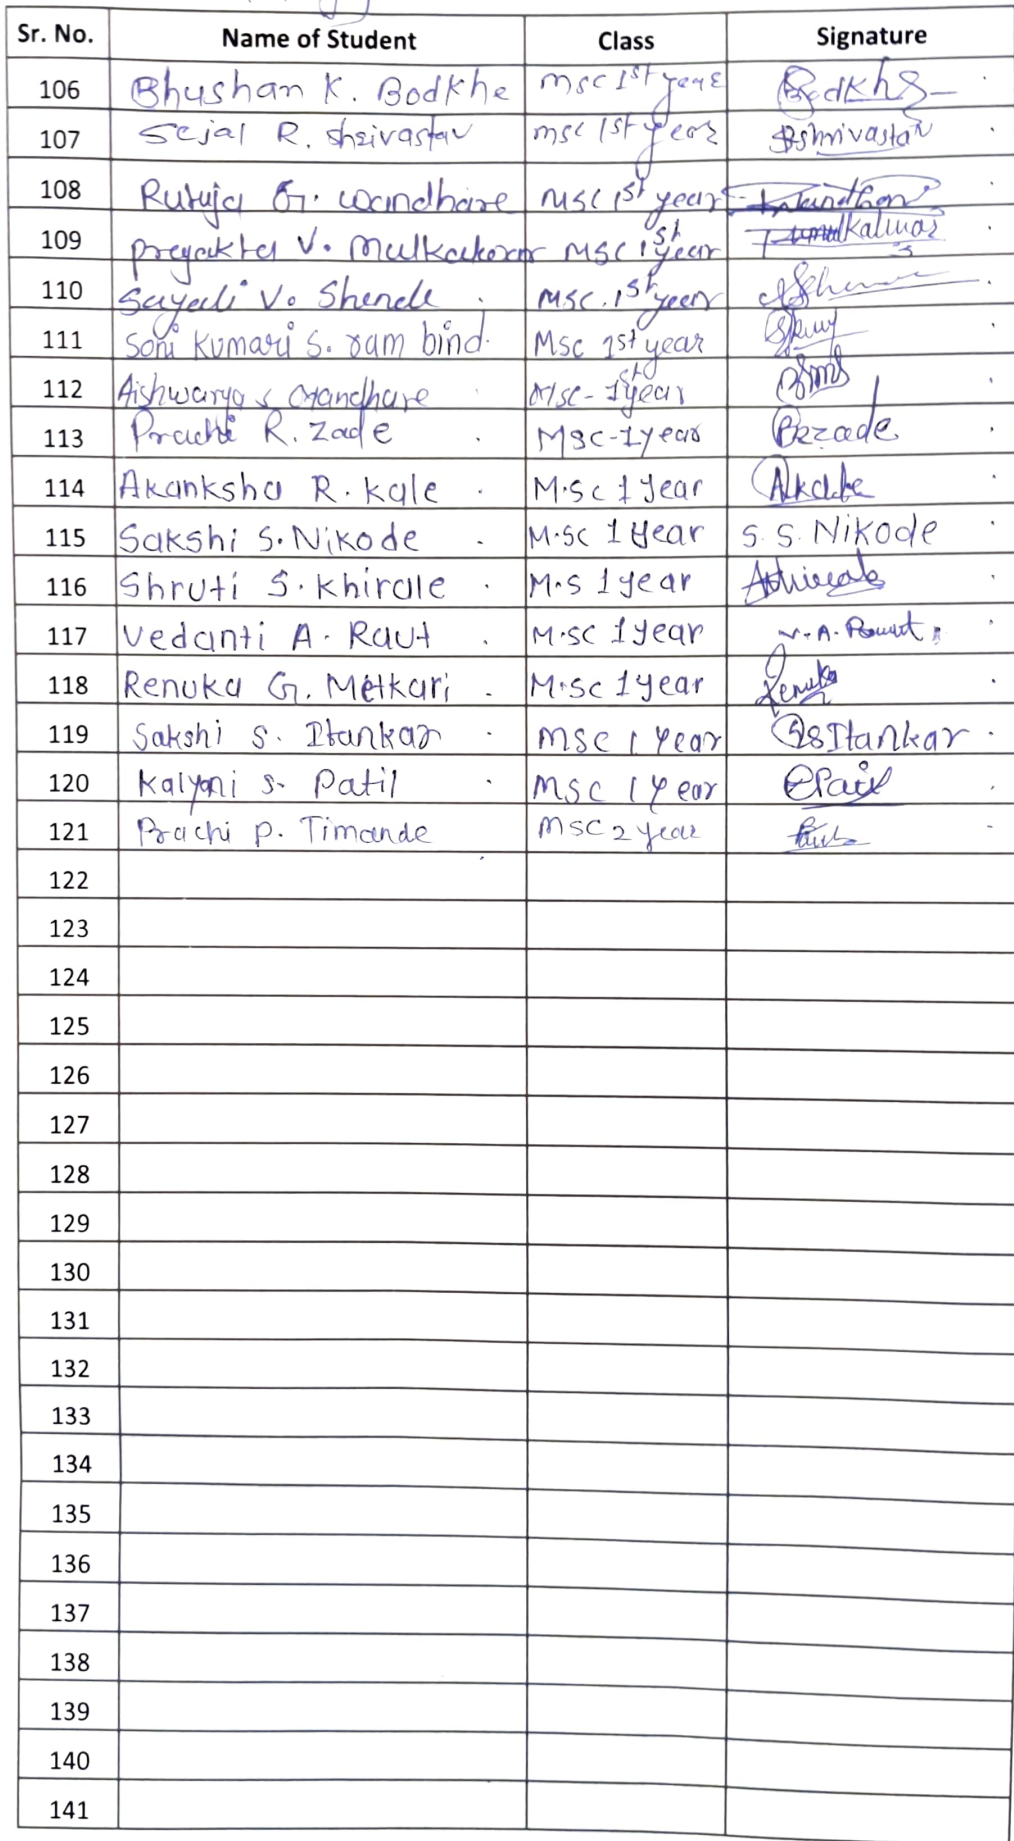 Sr. No. Name of Student Class Signature
106 Bhushan K. Bodkhe msc 1st year Bodkhe
107 Sejal R. Shrivastav msc 1st year Sshrivastav
108 Rutuja G. wandhare MSC 1st year
109 V. MSC 1st year
110 Sayali V. Shende MSC. 1st year
111 Soni Kumari S. ram bind. Msc 1st year
112 Aishwarya Msc - 1st year
113 Prachi R. Zade Msc-1 year
114 Akanksha R. Kale M.sc 1 Year
115 Sakshi S. Nikode M.sc 1 Year S. S. Nikode
116 Shruti S. Khirale M.s 1 year
117 Vedanti A. Raut M.sc 1 year V. A. Rauut
118 Renuka G. Metkari M.sc 1 year Renuka
119 Sakshi S. Itankar MSC 1 Year SSItankar
120 Kalyani S. Patil MSC 1 Year
121 Prachi P. Timande MSC 2 year
122
123
124
125
126
127
128
129
130
131
132
133
134
135
136
137
138
139
140
141